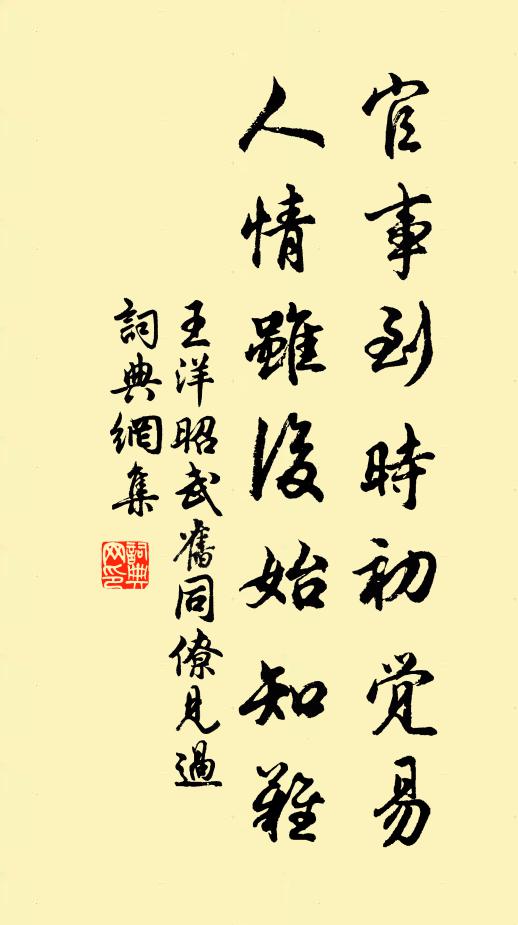 官事到時初觉易
人情雖後始知難
王洋昭武舊同僚見過
詞典網集
詞典網印